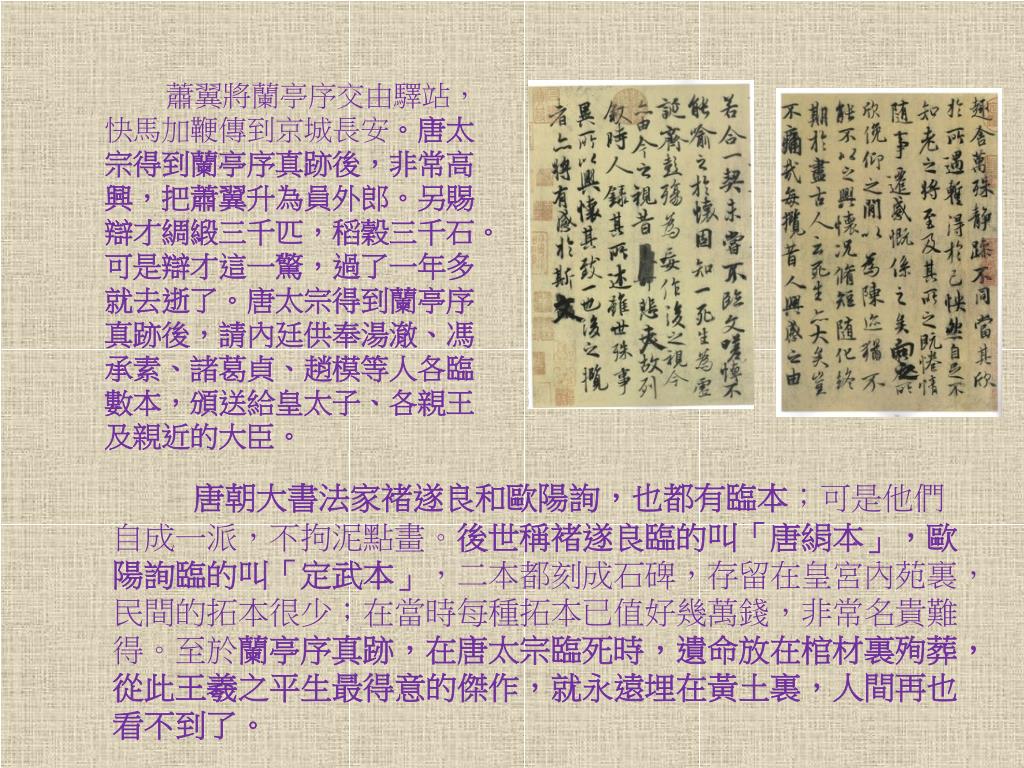 蕭翼將蘭亭序交由驛站，
快馬加鞭傳到京城長安。唐太
宗得到蘭亭序真跡後，非常高
興，把蕭翼升為員外郎。另賜
辯才綢緞三千匹，稻穀三千石。
可是辯才這一驚，過了一年多
就去逝了。唐太宗得到蘭亭序
真跡後，請內廷供奉湯澈、馮
承素、諸葛貞、趙模等人各臨
數本，頒送給皇太子、各親王
及親近的大臣。
趣舍萬殊靜躁不同當其欣
於所遇暫得於己怏然自足不
知老之將至及其所之既惓情
隨事遷感慨係之矣向之所
欣俛仰之間以為陳迹猶不
能不以之興懷況脩短隨化終
期於盡古人云死生亦大矣豈
不痛哉每攬昔人興感之由
若合一契未嘗不臨文嗟悼不
能喻之於懷固知一死生為虛
誕齊彭殤為妄作後之視今
亦由今之視昔悲夫故列
敘時人錄其所述雖世殊事
異所以興懷其致一也後之攬
者亦將有感於斯文
唐朝大書法家褚遂良和歐陽詢，也都有臨本；可是他們
自成一派，不拘泥點畫。後世稱褚遂良臨的叫「唐絹本」，歐
陽詢臨的叫「定武本」，二本都刻成石碑，存留在皇宮內苑裏，
民間的拓本很少；在當時每種拓本已值好幾萬錢，非常名貴難
得。至於蘭亭序真跡，在唐太宗臨死時，遺命放在棺材裏殉葬，
從此王羲之平生最得意的傑作，就永遠埋在黃土裏，人間再也
看不到了。